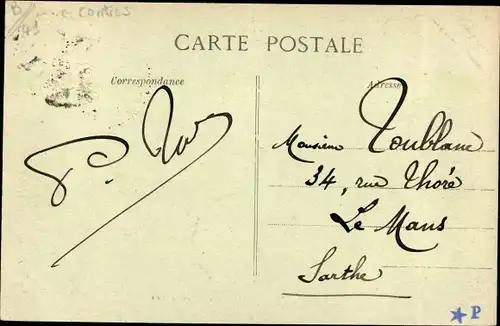 B
41
Contres
CARTE POSTALE
Correspondance
Adresse
Monsieur Toublanc
34, rue Thoré
Le Mans
Sarthe
P